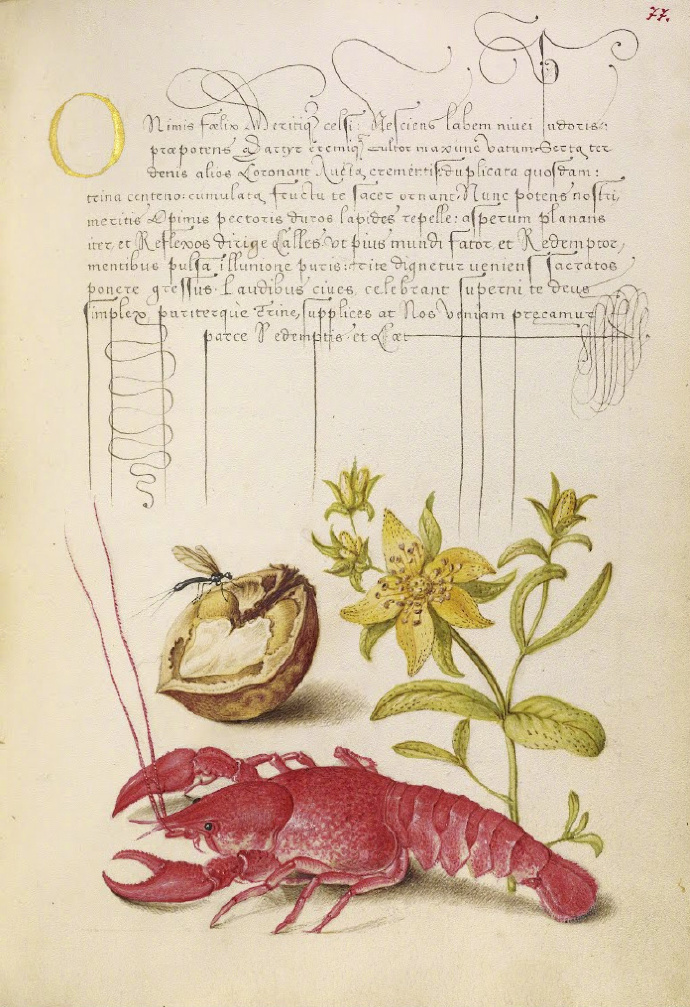 77.
O Nimis fælix Meritiq̃ celsi: Nesciens labem nivei pudoris:
præpotens Martyr eremiq̃ Cultor maxime vatum. Serta ter
denis alios Coronant Aucta crementis: duplicata quosdam:
trina centeno: cumulata fructu te sacer ornant. Nunc potens nostri,
meritis Opimis pectoris duros lapides repelle: asperum planans
iter, et Reflexos dirige Calles. Vt pius mundi Sator, et Redemptor,
mentibus pulsa illuuione puris: rite dignetur veniens sacratos
ponere gressus. Laudibus ciues celebrant superni te deus
simplex pariterque Trine, supplices at Nos veniam precamur
parce Redemptis. et Cæt